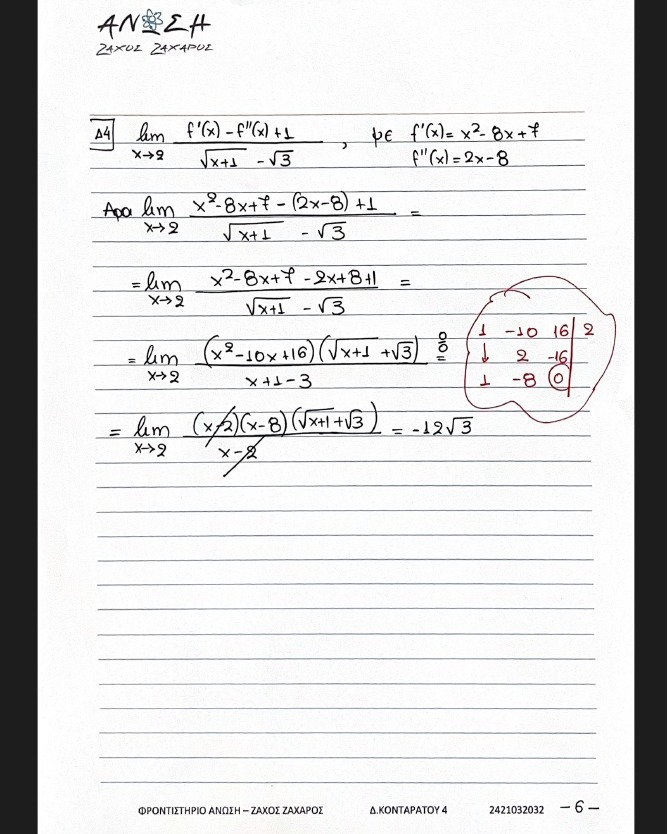 ΑΝΩΣΗ
ΖΑΧΟΣ ΖΑΧΑΡΟΣ
Δ4 lim x→2 (f'(x) - f''(x) + 1) / (√(x+1) - √3) , με f'(x) = x² - 8x + 7
f''(x) = 2x - 8
Άρα lim x→2 (x² - 8x + 7 - (2x - 8) + 1) / (√(x+1) - √3) =
= lim x→2 (x² - 8x + 7 - 2x + 8 + 1) / (√(x+1) - √3) =
= lim x→2 (x² - 10x + 16)(√(x+1) + √3) / (x + 1 - 3) 0/0 =
1 -10 16 | 2
↓ 2 -16
1 -8 0
= lim x→2 (x-2)(x-8)(√(x+1) + √3) / (x-2) = -12√3
ΦΡΟΝΤΙΣΤΗΡΙΟ ΑΝΩΣΗ – ΖΑΧΟΣ ΖΑΧΑΡΟΣ Δ.ΚΟΝΤΑΡΑΤΟΥ 4 2421032032 - 6 -